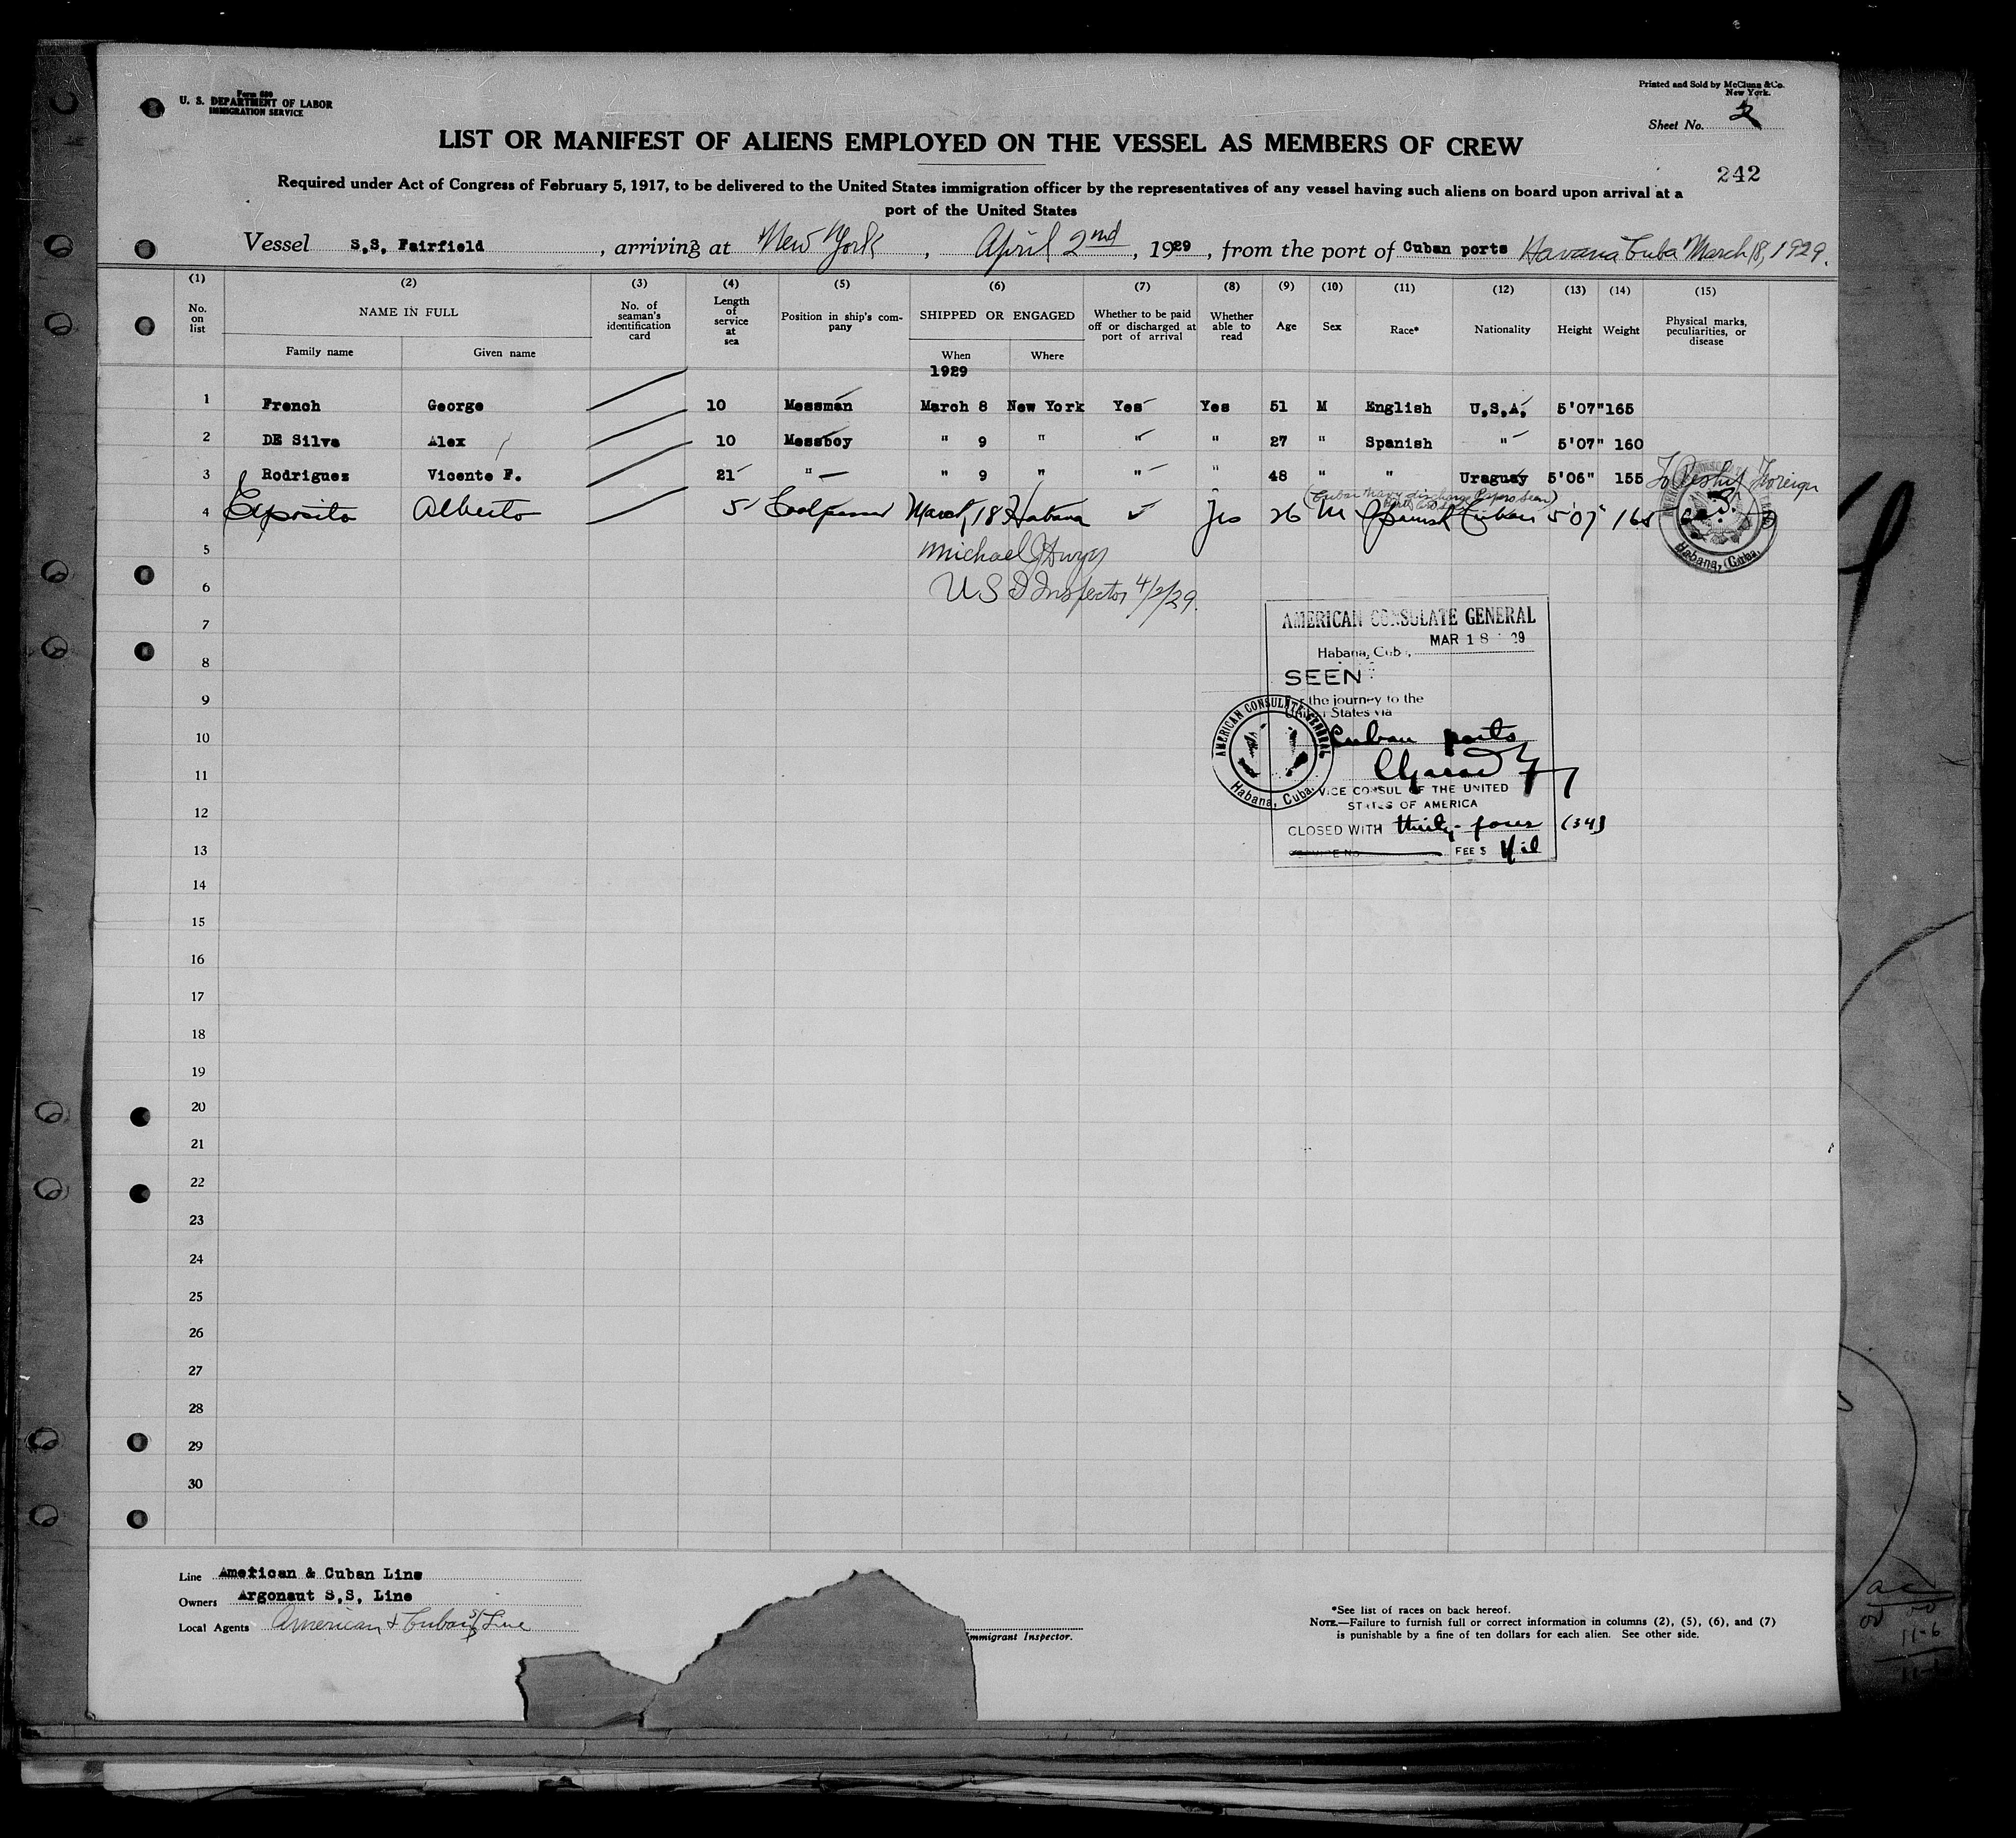 Form 680
U. S. DEPARTMENT OF LABOR
IMMIGRATION SERVICE
Printed and Sold by McClunn & Co.
New York.
Sheet No. 2
LIST OR MANIFEST OF ALIENS EMPLOYED ON THE VESSEL AS MEMBERS OF CREW
242
Required under Act of Congress of February 5, 1917, to be delivered to the United States immigration officer by the representatives of any vessel having such aliens on board upon arrival at a
port of the United States
Vessel S.S. Fairfield, arriving at New York, April 2nd, 1929, from the port of Cuban ports Havana Cuba March 18, 1929.
(1) (2) (3) (4) (5) (6) (7) (8) (9) (10) (11) (12) (13) (14) (15)
No. on list NAME IN FULL No. of seaman's identification card Length of service at sea Position in ship's company SHIPPED OR ENGAGED Whether to be paid off or discharged at port of arrival Whether able to read Age Sex Race* Nationality Height Weight Physical marks, peculiarities, or disease
Family name Given name When Where
1929
1 French George 10 Messman March 8 New York Yes Yes 51 M English U.S.A. 5'07" 165
2 DE Silva Alex 10 Messboy " 9 " " " 27 " Spanish " 5'07" 160
3 Rodrigues Vicente F. 21 " " 9 " " " 48 " " Uraguay 5'06" 155 To Reship Foreign
(Cuban Navy discharge Papers seen)
4 Esposito Alberto 5 Coalpasser March, 18 Habana Yes 26 M Spanish Cuban 5'07" 165
Habana, Cuba.
5
Michael J Dwyer
6
US I Inspector 4/2/29.
7
AMERICAN CONSULATE GENERAL
MAR 18 29
8
Habana, Cuba,
SEEN
9
the journey to the
States via
10
AMERICAN CONSULATE GENERAL
Habana, Cuba.
Cuban ports
11
VICE CONSUL OF THE UNITED
STATES OF AMERICA
12
CLOSED WITH thirty-four (34)
13
SERVICE NO. FEE $ Nil
14
15
16
17
18
19
20
21
22
23
24
25
26
27
28
29
30
Line American & Cuban Line
Owners Argonaut S.S. Line
Local Agents American & Cuban S/S Line
Immigrant Inspector.
*See list of races on back hereof.
NOTE.—Failure to furnish full or correct information in columns (2), (5), (6), and (7)
is punishable by a fine of ten dollars for each alien. See other side.
11-6